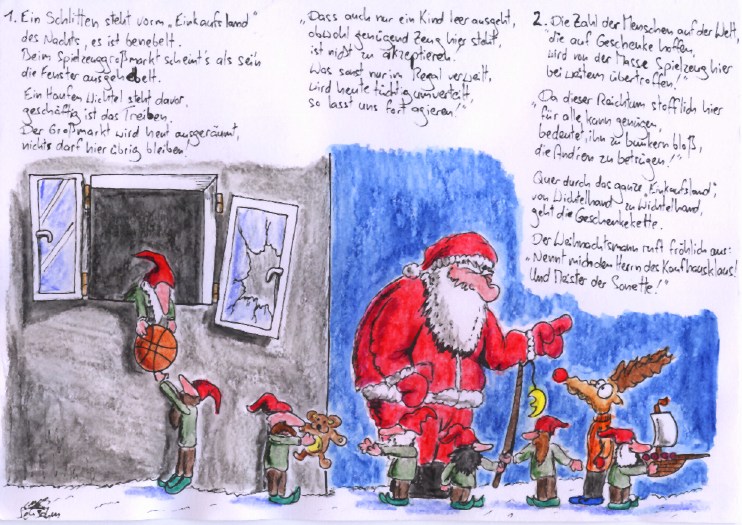 1. Ein Schlitten steht vorm „Einkaufsland"
des Nachts, es ist benebelt.
Beim Spielzeuggroßmarkt scheint's als sei'n
die Fenster ausgehebelt.
Ein Haufen Wichtel steht davor,
geschäftig ist das Treiben.
Der Großmarkt wird heut ausgeräumt,
nichts darf hier übrig bleiben!
„Dass auch nur ein Kind leer ausgeht,
obwohl genügend Zeug hier steht,
ist nicht zu akzeptieren.
Was sonst nur im Regal verweilt,
wird heute tüchtig umverteilt,
so lasst uns fort agieren!"
2. Die Zahl der Menschen auf der Welt,
die auf Geschenke hoffen,
wird von der Masse Spielzeug hier
bei weitem übertroffen!"
„Da dieser Reichtum stofflich hier
für alle kann genügen,
bedeutet, ihn zu bunkern bloß,
die Andren zu betrügen!"
Quer durch das ganze „Einkaufsland",
von Wichtelhand zu Wichtelhand,
geht die Geschenkekette.
Der Weihnachtsmann ruft fröhlich aus:
„Nennt mich den Herrn des Kaufhausklaus!
Und Meister der Sonette!"